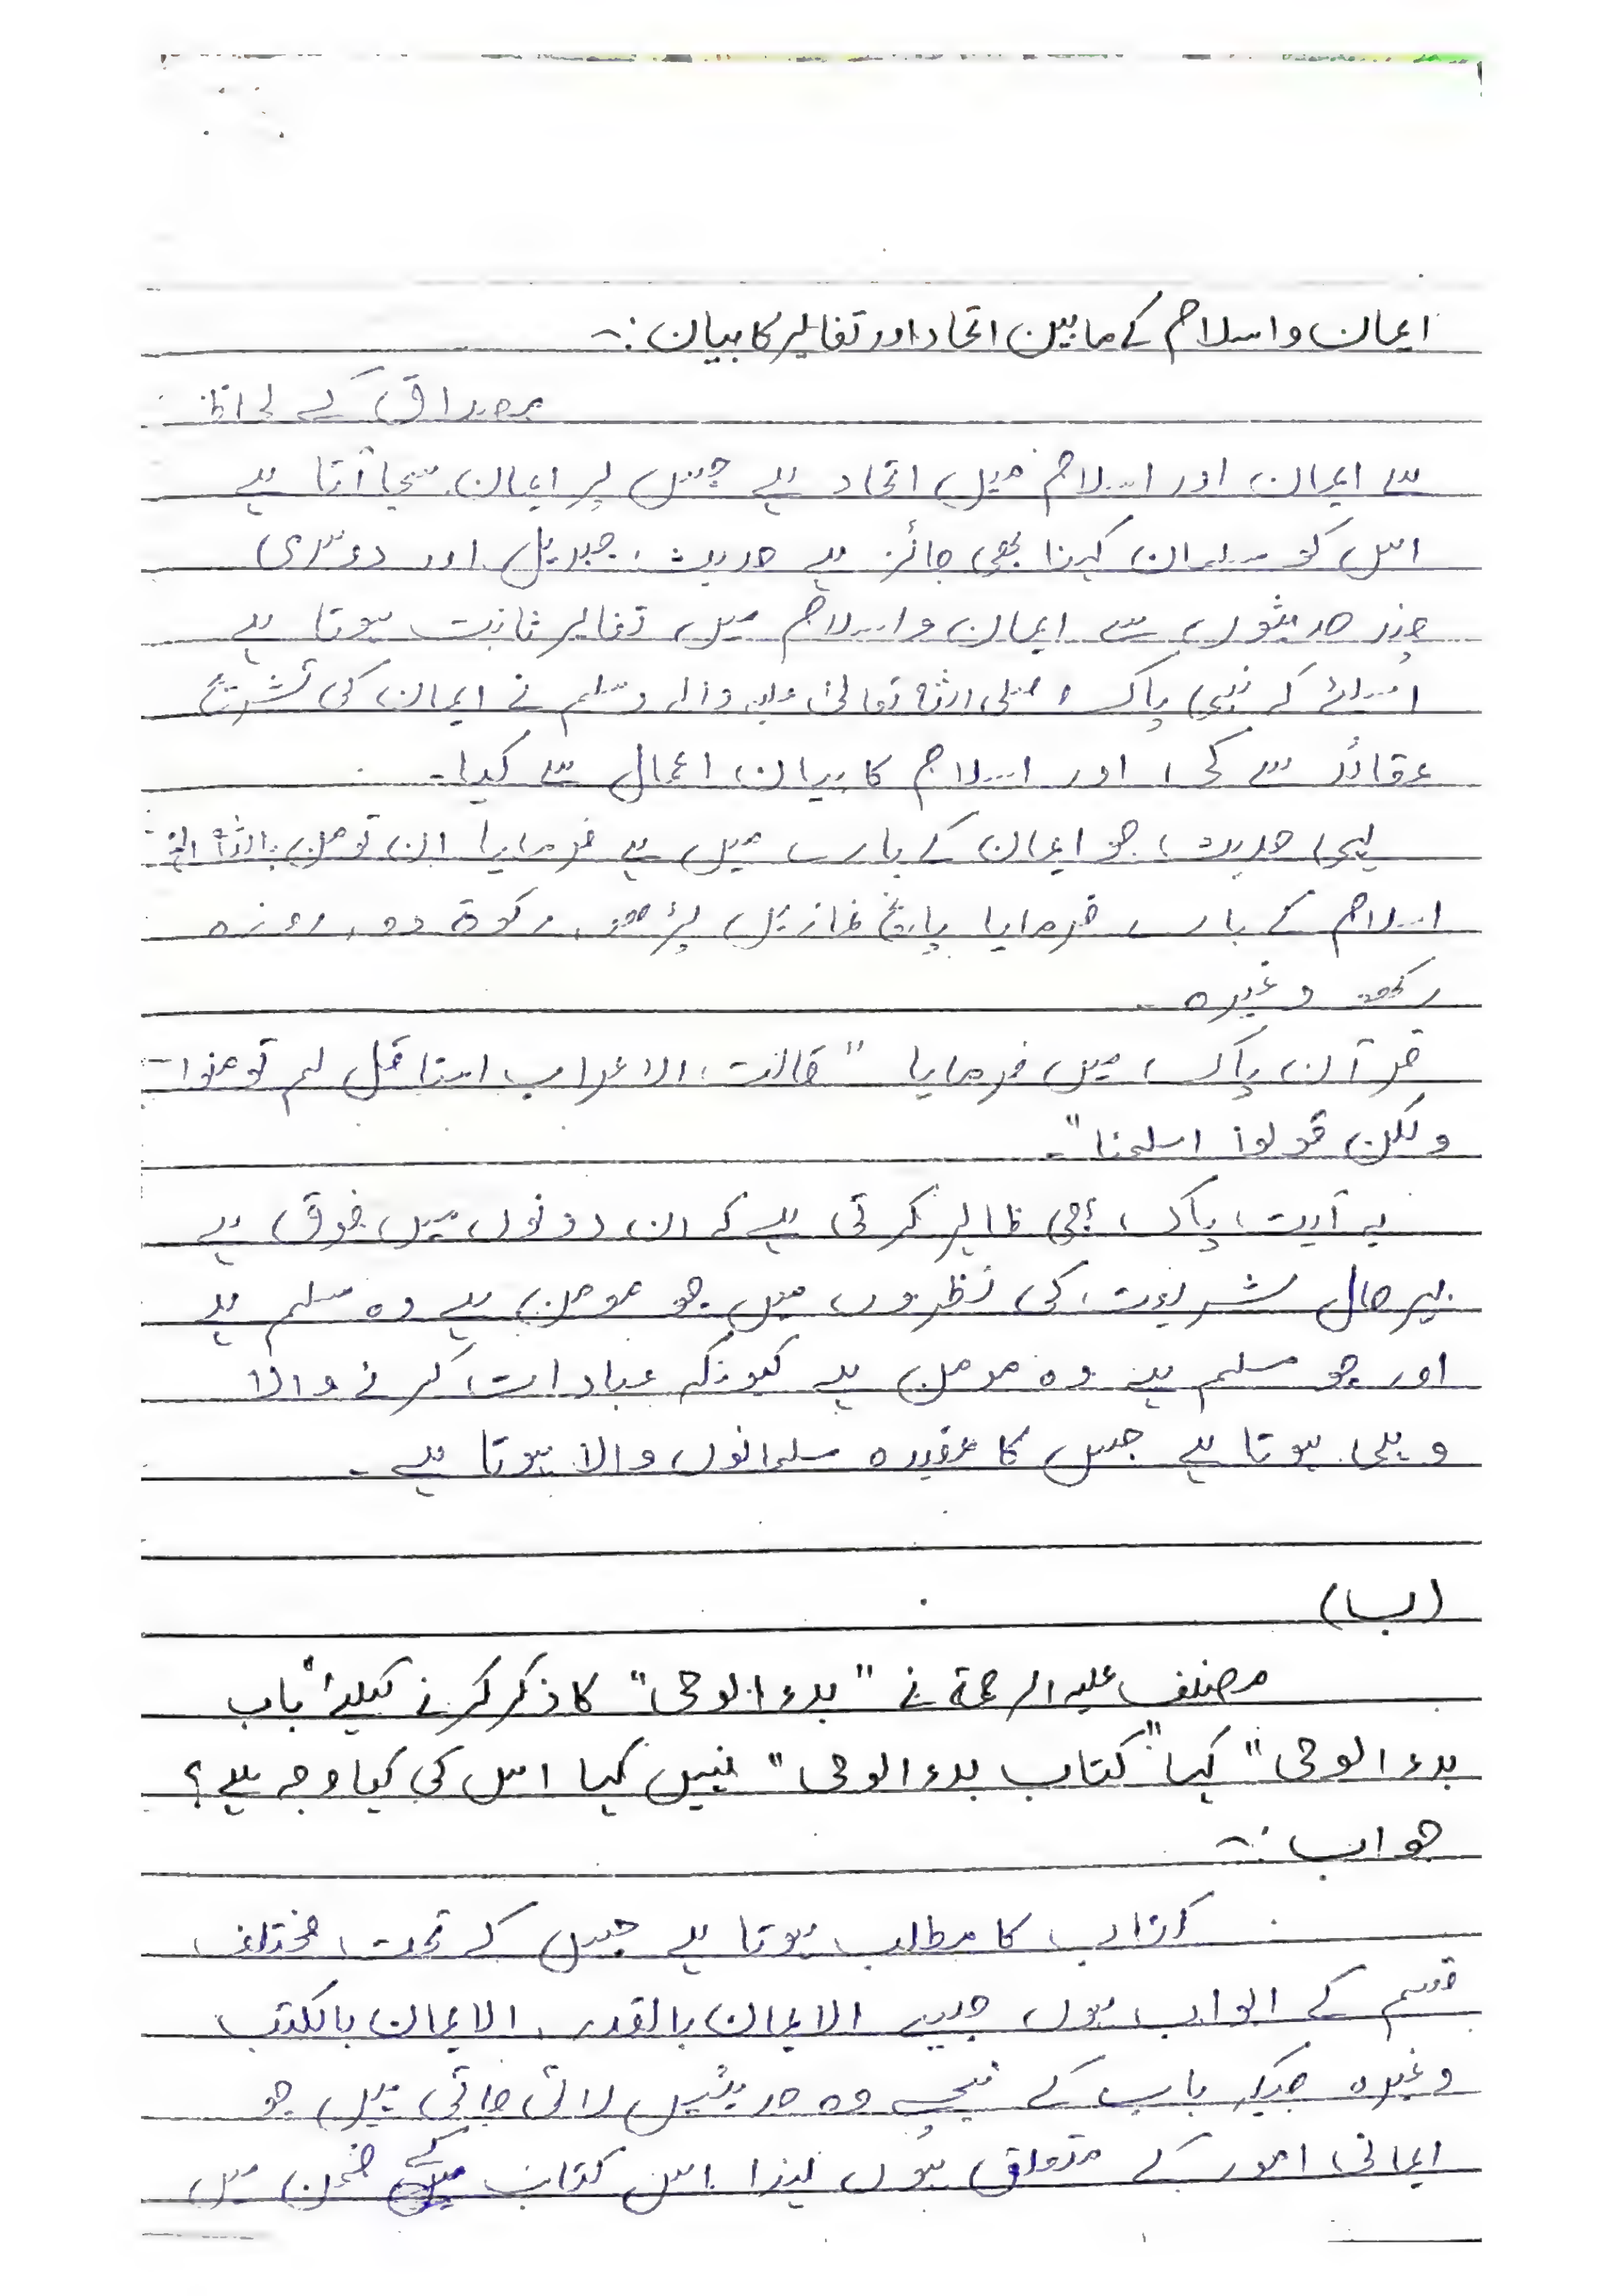 ایمان و اسلام کے مابین اتحاد اور تغایر کا بیان :~
مصداق کے لحاظ
سے ایمان اور اسلام میں اتحاد ہے جس پر ایمان سچا آتا ہے
اس کو مسلمان کہنا بھی جائز ہے حدیث جبریل اور دوسری
چند حدیثوں سے ایمان و اسلام میں تغایر ثابت ہوتا ہے
اسلئے کہ نبی پاک صلی اللہ تعالیٰ علیہ والہ وسلم نے ایمان کی تشریح
عقائد سے کی اور اسلام کا بیان اعمال سے کیا۔
یہی حدیث جو ایمان کے بارے میں ہے فرمایا ان تومن باللہ الخ
اسلام کے بارے فرمایا پانچ نمازیں پڑھو، زکوۃ دو، روزہ
رکھو وغیرہ۔
قرآن پاک میں فرمایا "قالت الاعراب امنا قل لم تومنوا
ولکن قولوا اسلمنا"۔
یہ آیت پاک بھی ظاہر کرتی ہے کہ ان دونوں میں فرق ہے
بہرحال شریعت کی نظروں میں جو مومن ہے وہ مسلم ہے
اور جو مسلم ہے وہ مومن ہے کیونکہ عبادات کرنے والا
وہی ہوتا ہے جس کا عقیدہ مسلمانوں والا ہوتا ہے۔
(ب)
مصنف علیہ الرحمۃ نے "بدء الوحی" کا ذکر کرنے کیلئے "باب
بدء الوحی" کہا "کتاب بدء الوحی" نہیں کہا اس کی کیا وجہ ہے؟
جواب :~
کتاب کا مطلب ہوتا ہے جس کے تحت مختلف
قسم کے ابواب ہوں جیسے الایمان بالقدر، الایمان بالکتب
وغیرہ جبکہ باب کے نیچے وہ حدیثیں لائی جاتی ہیں جو
ایمانی امور کے متعلق ہوں لہذا اس کتاب کے ضمن میں